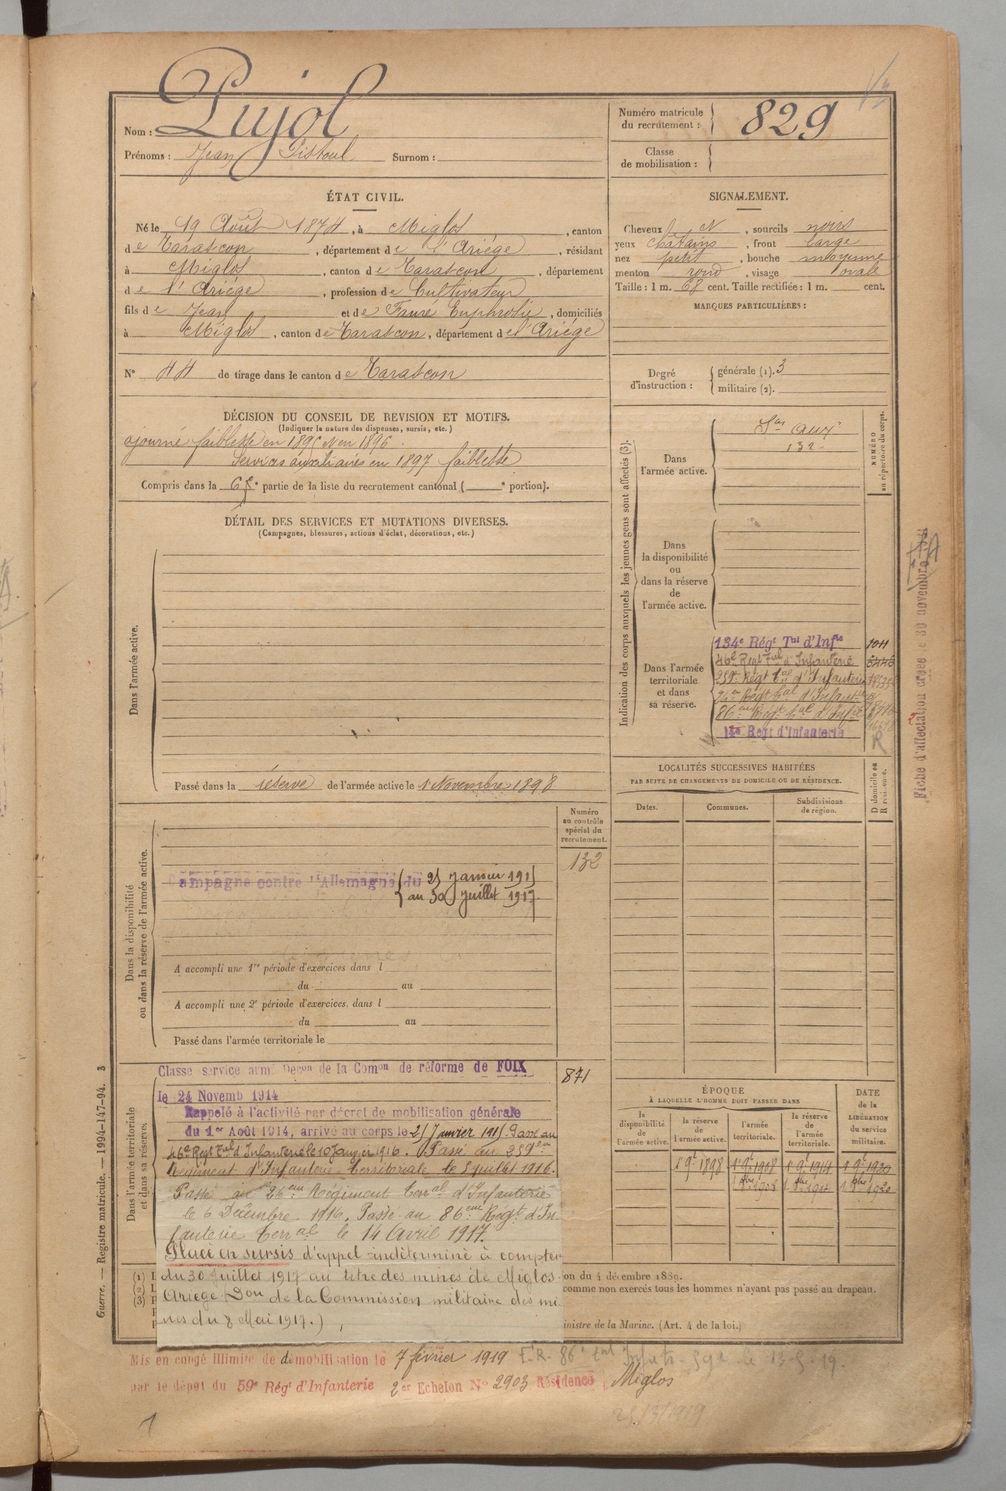 Nom : Pujol
Prénoms : Jean Surnom :
Numéro matricule
du recrutement : 829
Classe
de mobilisation :
ÉTAT CIVIL.
Né le 19 Août 1874, à Miglos, canton
de Tarascon, département de l'Ariége, résidant
à Miglos, canton de Tarascon, département
de l'Ariége, profession de Cultivateur
fils de Jean et de Faure Euphrosie, domiciliés
à Miglos, canton de Tarascon, département de l'Ariége
N° 44 de tirage dans le canton de Tarascon
SIGNALEMENT.
Cheveux N, sourcils noirs
yeux châtains, front large
nez petit, bouche moyenne
menton rond, visage ovale
Taille : 1 m. 68 cent. Taille rectifiée : 1 m. cent.
MARQUES PARTICULIÈRES :
Degré
d'instruction :
générale (1). 3
militaire (2).
DÉCISION DU CONSEIL DE REVISION ET MOTIFS.
(Indiquer la nature des dispenses, sursis, etc.)
ajourné faiblesse en 1895 et en 1896
Services auxiliaires en 1897 faiblesse
Compris dans la 6e partie de la liste du recrutement cantonal ( e portion).
DÉTAIL DES SERVICES ET MUTATIONS DIVERSES.
(Campagnes, blessures, actions d'éclat, décorations, etc.)
Dans l'armée active.
Passé dans la réserve de l'armée active le 1 Novembre 1898
Indication des corps auxquels les jeunes gens sont affectés (3).
NUMÉRO
au répertoire du corps.
Dans
l'armée active.
Ses aux
132
Dans
la disponibilité
ou
dans la réserve de
l'armée active.
Dans l'armée
territoriale
et dans
sa réserve.
134e Régt Tal d'Infie
46e Regt Tal d'Infanterie
359e Régt tal d'Infanterie
86eme Régt tal d'Infie
Regt d'Infanterie
R
LOCALITÉS SUCCESSIVES HABITÉES
PAR SUITE DE CHANGEMENTS DE DOMICILE OU DE RÉSIDENCE.
Dates.
Communes.
Subdivisions
de région.
D domicile ou
R résidence.
Dans la disponibilité
ou dans la réserve de l'armée active.
Numéro
au contrôle
spécial du
recrutement.
132
Campagne contre l'Allemagne du 25 Janvier 1915
au 30 Juillet 1917
A accompli une 1re période d'exercices dans l
du au
A accompli une 2e période d'exercices dans l
du au
Passé dans l'armée territoriale le
Dans l'armée territoriale
et dans sa réserve.
871
Classé service armé Décon de la Comon de réforme de FOIX
le 24 Novemb 1914
Rappelé à l'activité par décret de mobilisation générale
du 1er Août 1914, arrivé au corps le 25 Janvier 1915 Passé au
46e Regt Tal d'Infanterie le 10 Janvier 1916. Passé au 359eme
Régiment d'Infanterie Territoriale le 8 juillet 1916.
Passé au 24eme Régiment Terral d'Infanterie
le 6 Décembre 1916. Passé au 86eme Régt d'In
fanterie Terral le 14 Avril 1917.
Placé en sursis d'appel indéterminé à compter
du 30 Juillet 1917 au titre des mines de Miglos-
Ariège (Don de la Commission militaire des mi-
nes du 8 Mai 1917.)
ÉPOQUE
À LAQUELLE L'HOMME DOIT PASSER DANS
la
disponibilité
de
l'armée active.
la
réserve de
l'armée active.
l'armée
territoriale.
la réserve
de
l'armée
territoriale.
DATE
de la
LIBÉRATION
du service
militaire.
1 9e 1898
1 9e 1908
1 9e 1914
1 9e 1920
on du 4 décembre 1889.
comme non exercés tous les hommes n'ayant pas passé au drapeau.
inistre de la Marine. (Art. 4 de la loi.)
(1)
(2)
(3)
Mis en congé illimité de démobilisation le 7 février 1919
par le dépôt du 59e Régt d'Infanterie 2er Echelon N° 2903 Résidence Miglos
Guerre. — Registre matricule. — 1994-147-94.
Fiche d'affectation créée le 30 novembre